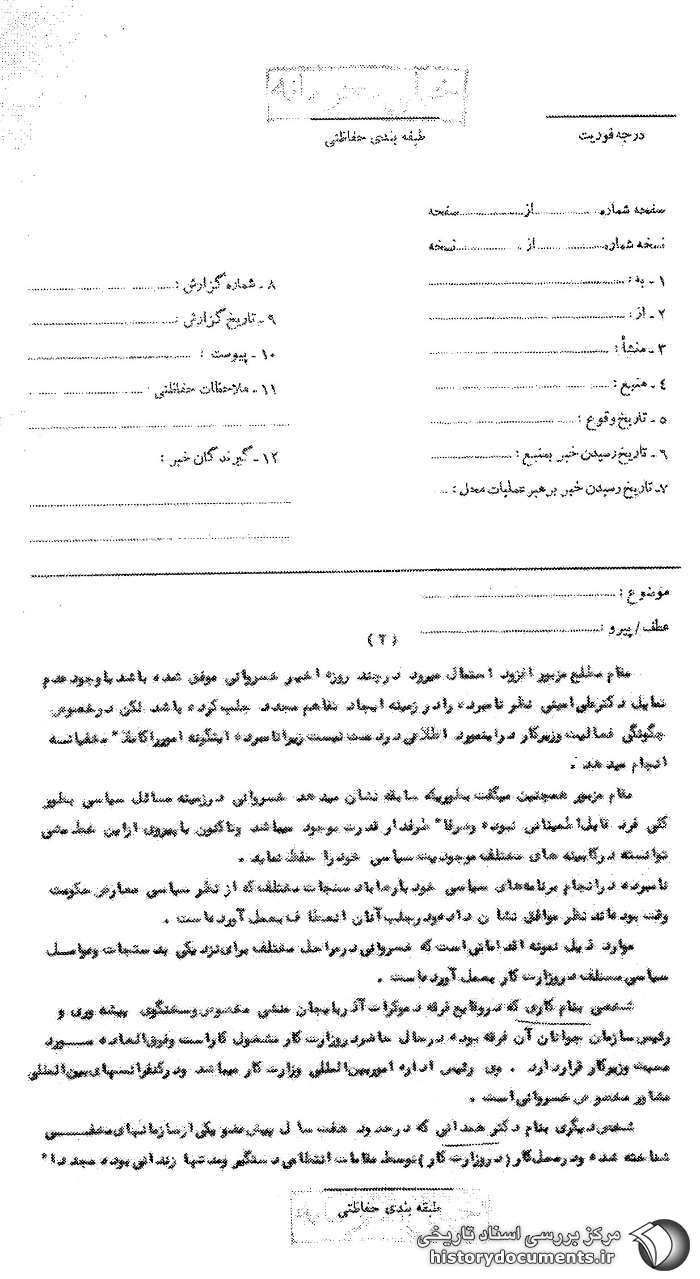 خیلی محرمانه
طبقه بندی حفاظتی
درجه فوریت
صفحه شماره ........ از ........ صفحه
نسخه شماره ........ از ........ نسخه
۱ ـ به :
۲ ـ از :
۳ ـ منشأ :
۴ ـ منبع :
۵ ـ تاریخ وقوع :
۶ ـ تاریخ رسیدن خبر بمنبع :
۷ـ تاریخ رسیدن خبر برهبر عملیات محل :
۸ ـ شماره گزارش :
۹ ـ تاریخ گزارش :
۱۰ ـ پیوست :
۱۱ ـ ملاحظات حفاظتی :
۱۲ ـ گیرندگان خبر :
موضوع :
عطف / پیرو :
(۲)
مقام مطلع مزبور افزود احتمال میرود در چند روزه اخیر خسروانی موفق شده باشد با وجود عدم
تمایل دکتر علی امینی نظر نامبرده را در زمینه ایجاد تفاهم مجدد جلب کرده باشد لکن در خصوص
چگونگی فعالیت وزیر کار در اینمورد اطلاعی در دست نیست زیرا نامبرده اینگونه امور را کاملا" مخفیانه
انجام میدهد .
مقام مزبور همچنین میگفت بطوریکه سابقه نشان میدهد خسروانی در زمینه مسائل سیاسی بطور
کلی فرد قابل اطمینانی نبوده و صرفا" طرفدار قدرت موجود میباشد و تاکنون با پیروی از این خط مشی
توانسته در کابینه های مختلف موجودیت سیاسی خود را حفظ نماید .
نامبرده در انجام برنامه‌های سیاسی خود بارها با دستجات مختلف که از نظر سیاسی معارض حکومت
وقت بوده‌اند نظر موافق نشان داده و در جلب آنان انعطاف بعمل آورده است .
موارد ذیل نمونه اقداماتی است که خسروانی در مراحل مختلف برای نزدیکی بدستجات و عوامل
سیاسی مختلف در وزارت کار بعمل آورده است .
شخصی بنام کاری که در وقایع فرقه دموکرات آذربایجان منشی مخصوص و سخنگوی پیشه وری و
رئیس سازمان جوانان آن فرقه بوده در حال حاضر در وزارت کار مشغول کار است و فوق العاده مورد
محبت وزیر کار قرار دارد . وی رئیس اداره امور بین المللی وزارت کار میباشد و در کنفرانسهای بین المللی
مشاور مخصوص خسروانی است .
شخص دیگری بنام دکتر همدانی که در حدود هفت سال پیش عضو یکی از سازمانهای مخفی
شناخته شده و در محل کار ( در وزارت کار ) توسط مقامات انتظامی دستگیر و مدتها زندانی بوده مجددا"
طبقه بندی حفاظتی
مرکز بررسی اسناد تاریخی
historydocuments.ir